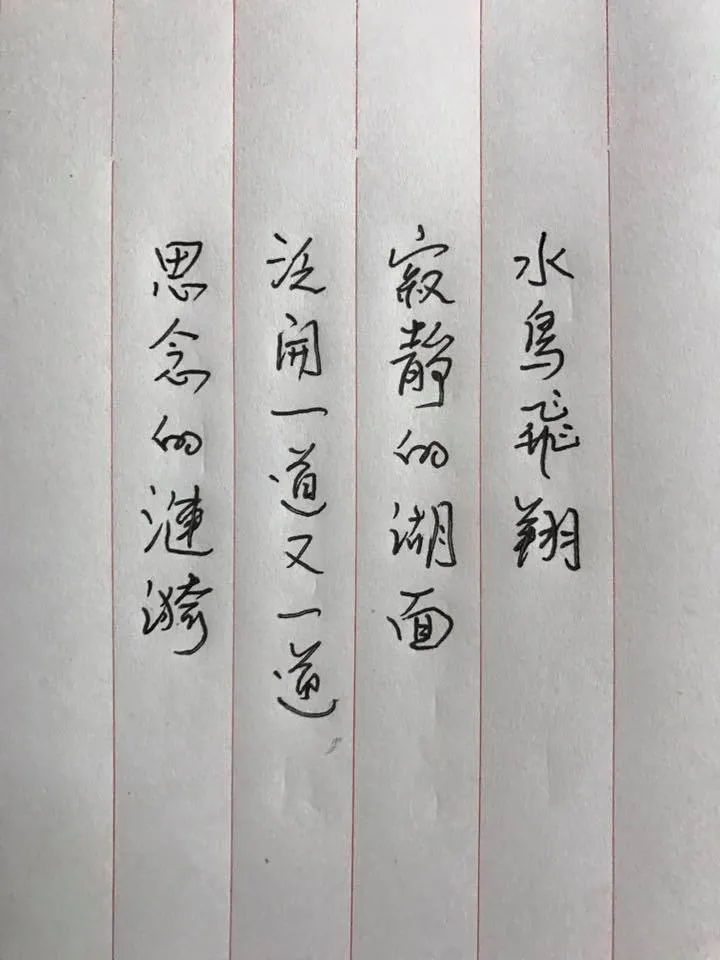 水鳥飛翔
寂靜的湖面
泛開一道又一道
思念的漣漪